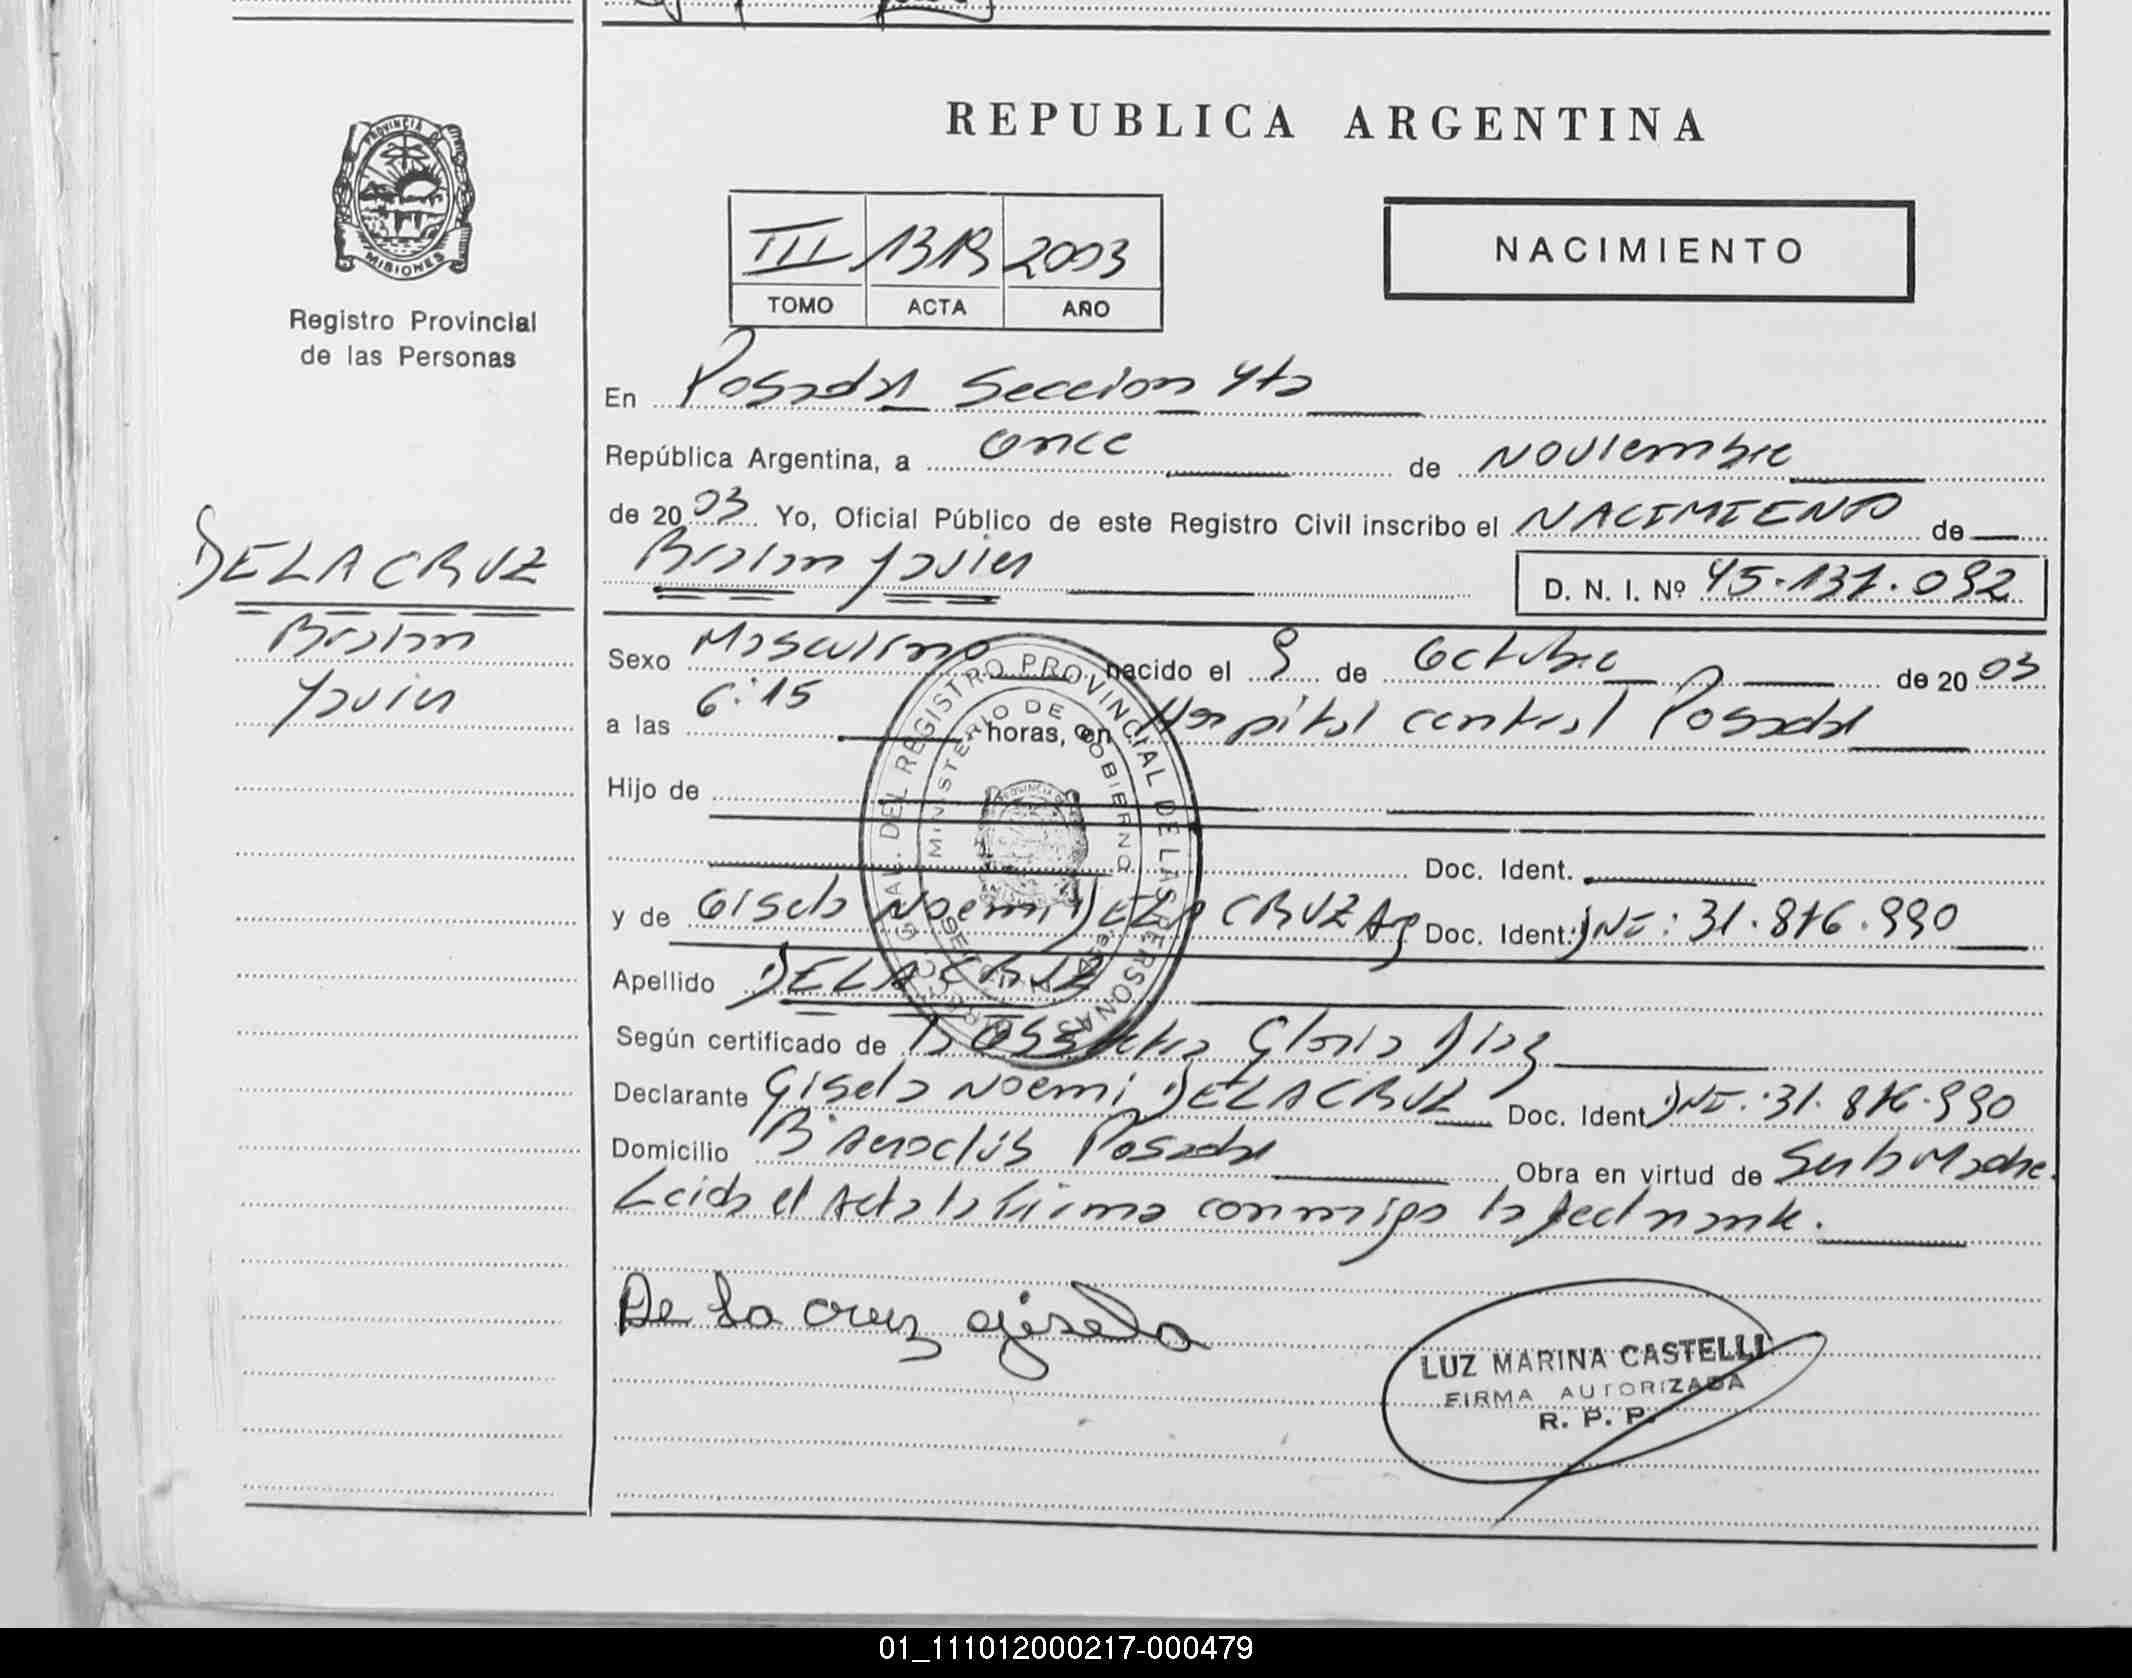 REPUBLICA ARGENTINA
PROVINCIA DE
MISIONES
Registro Provincial
de las Personas
III 1319 2003
TOMO ACTA AÑO
NACIMIENTO
En Posadas Seccion 4ta
República Argentina, a once de Noviembre
de 2003 Yo, Oficial Público de este Registro Civil inscribo el NACIMIENTO de
DE LA CRUZ
Braian
Javier
Braian Javier D. N. I. Nº 45.137.092
Sexo Masculino nacido el 9 de Octubre de 2003
a las 6:15 horas, en Hospital central Posadas
Hijo de
Doc. Ident.
y de Gisela Noemi DE LA CRUZ Arg Doc. Ident. DNI: 31.876.990
Apellido DE LA CRUZ
Según certificado de Obstetra Gloria Diaz
Declarante Gisela Noemi DE LA CRUZ Doc. Ident DNI: 31.876.990
Domicilio B° Aeroclub Posadas Obra en virtud de Ser la Madre.
Leida el Acta la firma conmigo la declarante.
De la cruz gisela
LUZ MARINA CASTELLI
FIRMA AUTORIZADA
R. P. P.
DEL REGISTRO PROVINCIAL DE LAS PERSONAS
MINISTERIO DE GOBIERNO
01_111012000217-000479